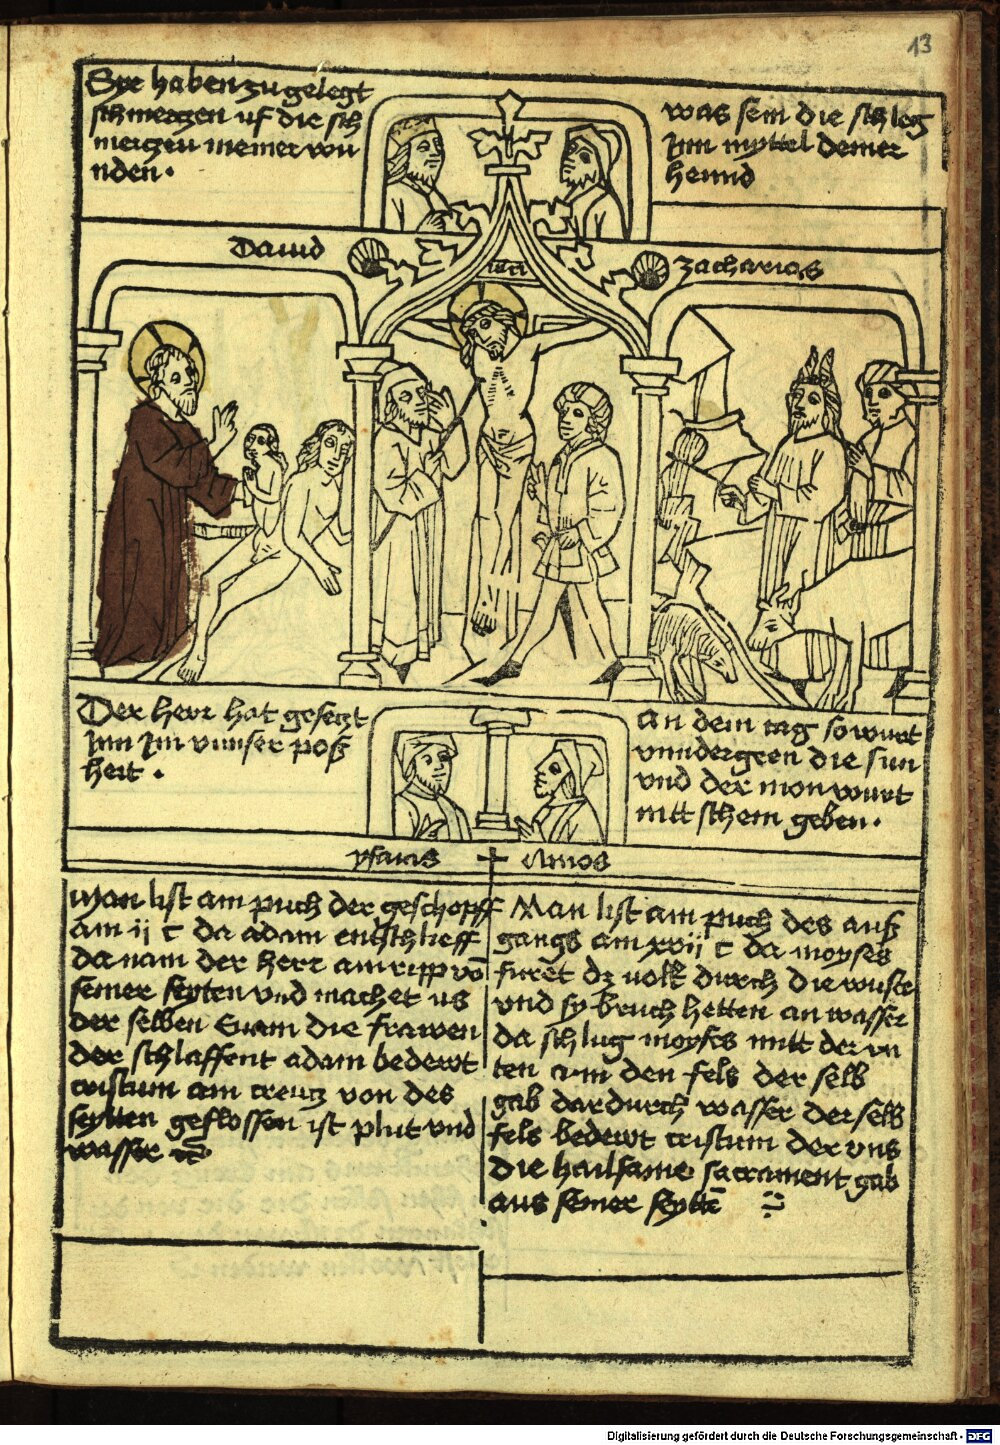 13
Sye haben zu gelegt
schmerzen uf die sch
merczen meiner wu
nden.
was sein die schleg
Jnn myttel deiner
hennd
Dauid
zacharias
Der herr hat gesetzt
Jnn Jm vnnser poß
heit.
An dem tag so wurt
vnndergeen die sun
vnd der mon wurt
nitt schein geben.
ysaias
Amos
Man list am puch der geschopff
am ij c da adam entschlieff
da nam der herr ain ripp võ
seiner seyten vnd machet us
der selben Euam die frawen
der schlaffent adam bedewt
cristum am creutz von des
seytten geflossen ist plut vnd
wasser
Man list am puch des auß
gangs am xvij c da moyses
furet dz volk durch die wuste
vnd sy bruch hetten an wasser
da schlug moyses mitt der ru
ten an den fels der selb
gab dardurch wasser der selb
fels bedewt cristum der vns
die hailsame sacrament gab
aus seiner seyttē
Digitalisierung gefördert durch die Deutsche Forschungsgemeinschaft - DFG